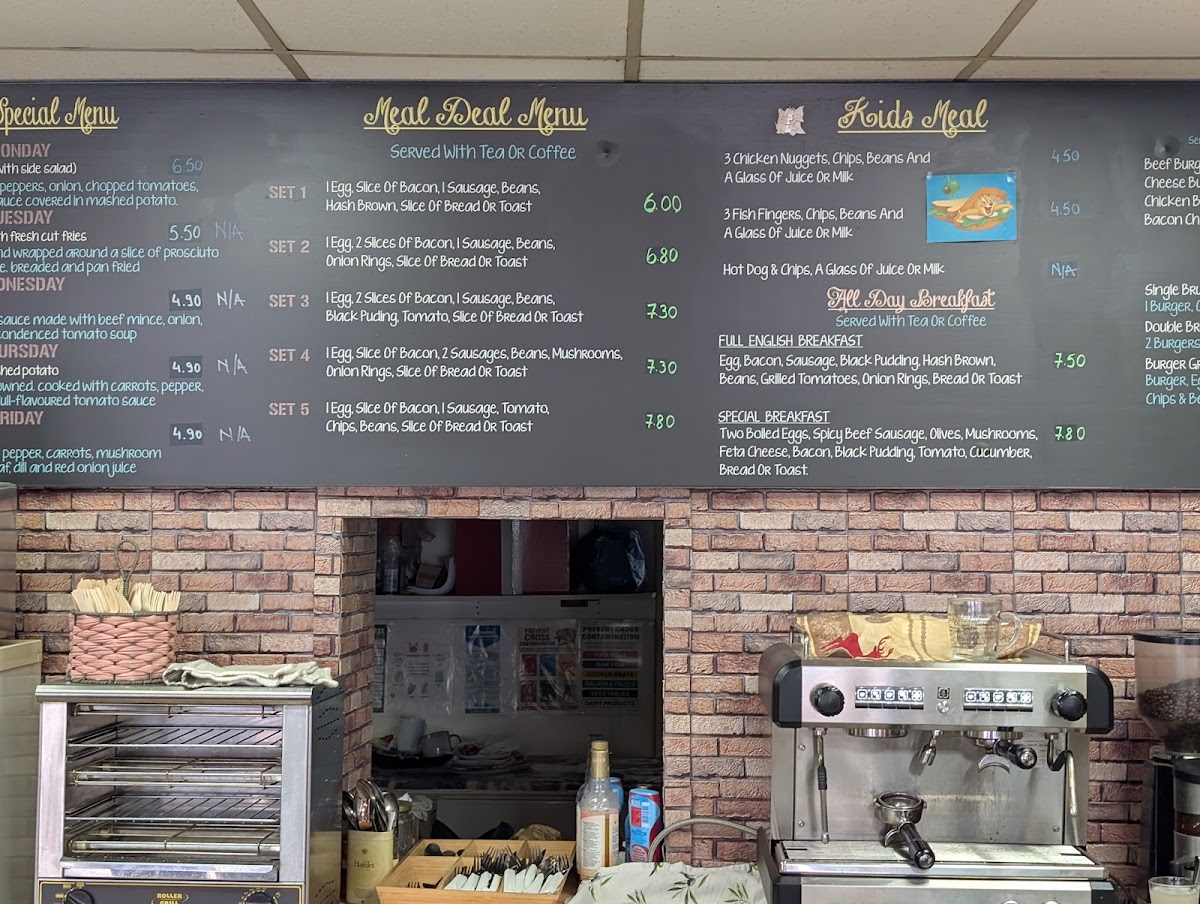 Special Menu
MONDAY
with side salad) 6.50
peppers, onion, chopped tomatoes,
sauce covered in mashed potato.
TUESDAY
fresh cut fries 5.50 N/A
wrapped around a slice of prosciuto
breaded and pan fried
WEDNESDAY
4.90 N/A
sauce made with beef mince, onion,
condenced tomato soup
THURSDAY
potato 4.90 N/A
cooked with carrots, pepper,
full-flavoured tomato sauce
FRIDAY
4.90 N/A
pepper, carrots, mushroom
dill and red onion juice
Meal Deal Menu
Served With Tea Or Coffee
SET 1 1 Egg, Slice Of Bacon, 1 Sausage, Beans,
Hash Brown, Slice Of Bread Or Toast 6.00
SET 2 1 Egg, 2 Slices Of Bacon, 1 Sausage, Beans,
Onion Rings, Slice Of Bread Or Toast 6.80
SET 3 1 Egg, 2 Slices Of Bacon, 1 Sausage, Beans,
Black Puding, Tomato, Slice Of Bread Or Toast 7.30
SET 4 1 Egg, Slice Of Bacon, 2 Sausages, Beans, Mushrooms,
Onion Rings, Slice Of Bread Or Toast 7.30
SET 5 1 Egg, Slice Of Bacon, 1 Sausage, Tomato,
Chips, Beans, Slice Of Bread Or Toast 7.80
Kids Meal
3 Chicken Nuggets, Chips, Beans And 4.50
A Glass Of Juice Or Milk
3 Fish Fingers, Chips, Beans And 4.50
A Glass Of Juice Or Milk
Hot Dog & Chips, A Glass Of Juice Or Milk N/A
All Day Breakfast
Served With Tea Or Coffee
FULL ENGLISH BREAKFAST
Egg, Bacon, Sausage, Black Pudding, Hash Brown, 7.50
Beans, Grilled Tomatoes, Onion Rings, Bread Or Toast
SPECIAL BREAKFAST
Two Boiled Eggs, Spicy Beef Sausage, Olives, Mushrooms, 7.80
Feta Cheese, Bacon, Black Pudding, Tomato, Cucumber,
Bread Or Toast.
Beef Burg
Cheese Bu
Chicken B
Bacon Ch
Single Bru
1 Burger,
Double Br
2 Burgers
Burger Gr
Burger, Eg
Chips & Be
PREVENT CROSS
PREVENT CROSS
CONTAMINATION
RAW FISH
VEGETABLES
DAIRY PRODUCTS
Hamlet
ROLLER
GRILL